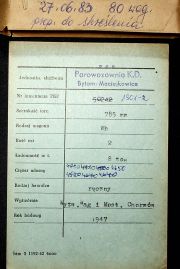 27.06.83 80 wag.
prop. do skreślenia
Jednostka służbowa Parowozownia K.D.
Bytom-Maciejkowice
Nr inwentarza PKP
Szerokość toru 785 mm
Rodzaj wagonu Wb
Ilość osi 2
Ładowność w t. 8 ton
Części składowe
Rodzaj hamulca ręczny
Wytwórnia Wytw. Wag i Most, Chorzów
Rok budowy 1947